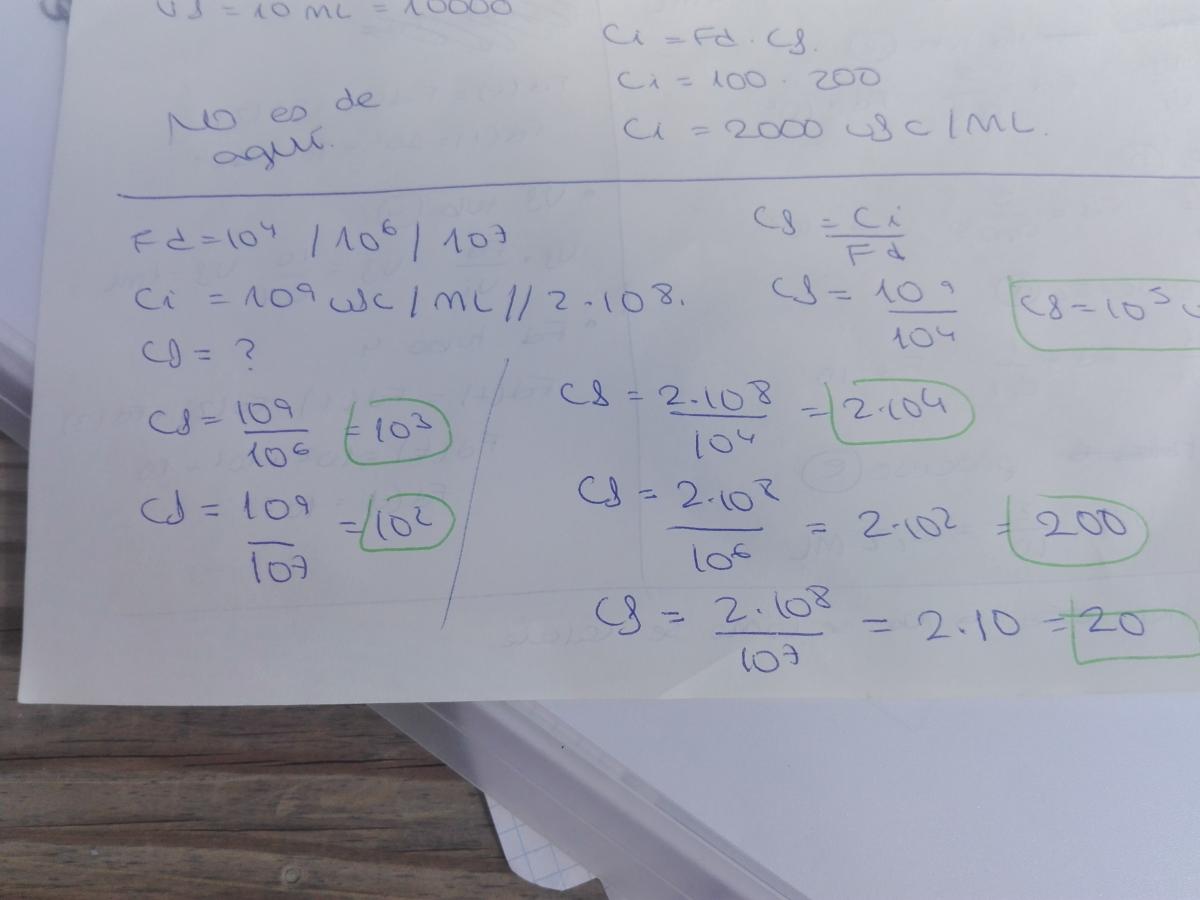 = 10 ML = 10000
Ci = Fd · Cf.
Ci = 100 · 200
Ci = 2000 ufc / ML.
NO es de
aquí.
Fd = 10⁴ / 10⁶ / 10⁷
Ci = 10⁹ ufc / ML // 2·10⁸.
Cf = ?
Cf = Ci / Fd
Cf = 10⁹ / 10⁴
Cf = 10⁵
Cf = 10⁹ / 10⁶ = 10³
Cf = 10⁹ / 10⁷ = 10²
Cf = 2·10⁸ / 10⁴ = 2·10⁴
Cf = 2·10⁸ / 10⁶ = 2·10² = 200
Cf = 2·10⁸ / 10⁷ = 2·10 = 20